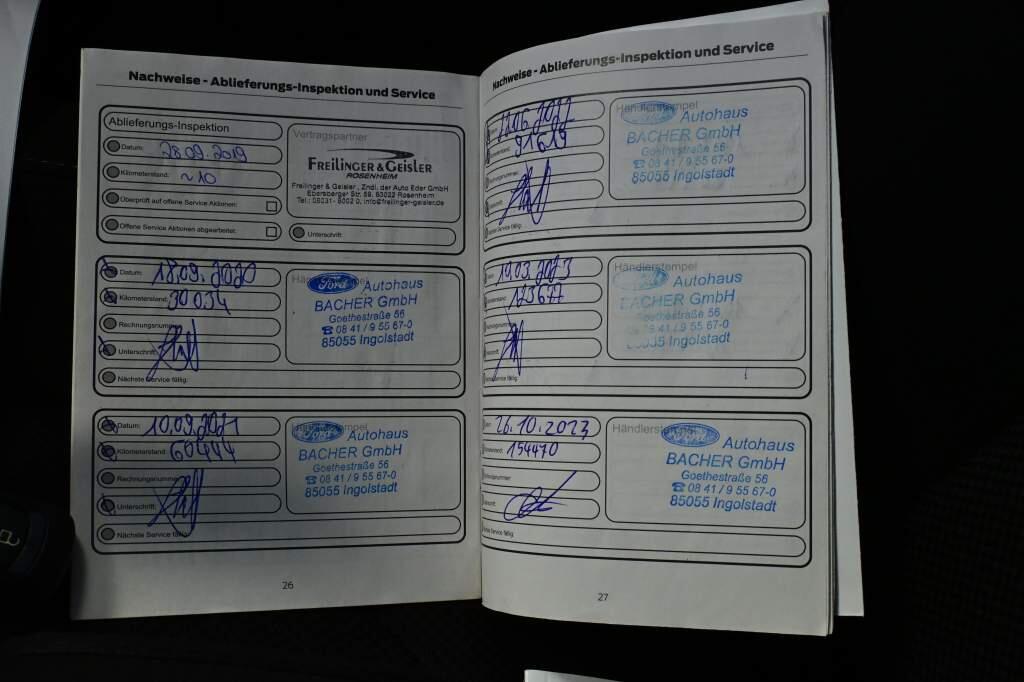 Nachweise - Ablieferungs-Inspektion und Service
Ablieferungs-Inspektion
Datum: 28.09.2019
Kilometerstand: ~10
Überprüft auf offene Service Aktionen:
Offene Service Aktionen abgearbeitet:
Vertragspartner
FREILINGER & GEISLER
ROSENHEIM
Freilinger & Geisler, Zndl. der Auto Eder GmbH
Ebersberger Str. 59, 83022 Rosenheim
Unterschrift:
Datum: 18.09.2020
Kilometerstand: 30034
Rechnungsnummer
Unterschrift:
Nächste Service fällig:
Ford Autohaus
BACHER GmbH
Goethestraße 56
☎ 08 41 / 9 55 67-0
85055 Ingolstadt
Datum: 10.09.2021
Kilometerstand: 60444
Rechnungsnummer
Unterschrift:
Nächste Service fällig:
Ford Autohaus
BACHER GmbH
Goethestraße 56
☎ 08 41 / 9 55 67-0
85055 Ingolstadt
26
Nachweise - Ablieferungs-Inspektion und Service
06.2022
91619
Service fällig:
Händlerstempel
Autohaus
BACHER GmbH
Goethestraße 56
☎ 08 41 / 9 55 67-0
85055 Ingolstadt
03.2023
Service fällig:
Händlerstempel
Autohaus
BACHER GmbH
Goethestraße 56
08 41 / 9 55 67-0
Ingolstadt
26.10.2023
154470
Service fällig:
Ford Autohaus
BACHER GmbH
Goethestraße 56
☎ 08 41 / 9 55 67-0
85055 Ingolstadt
27